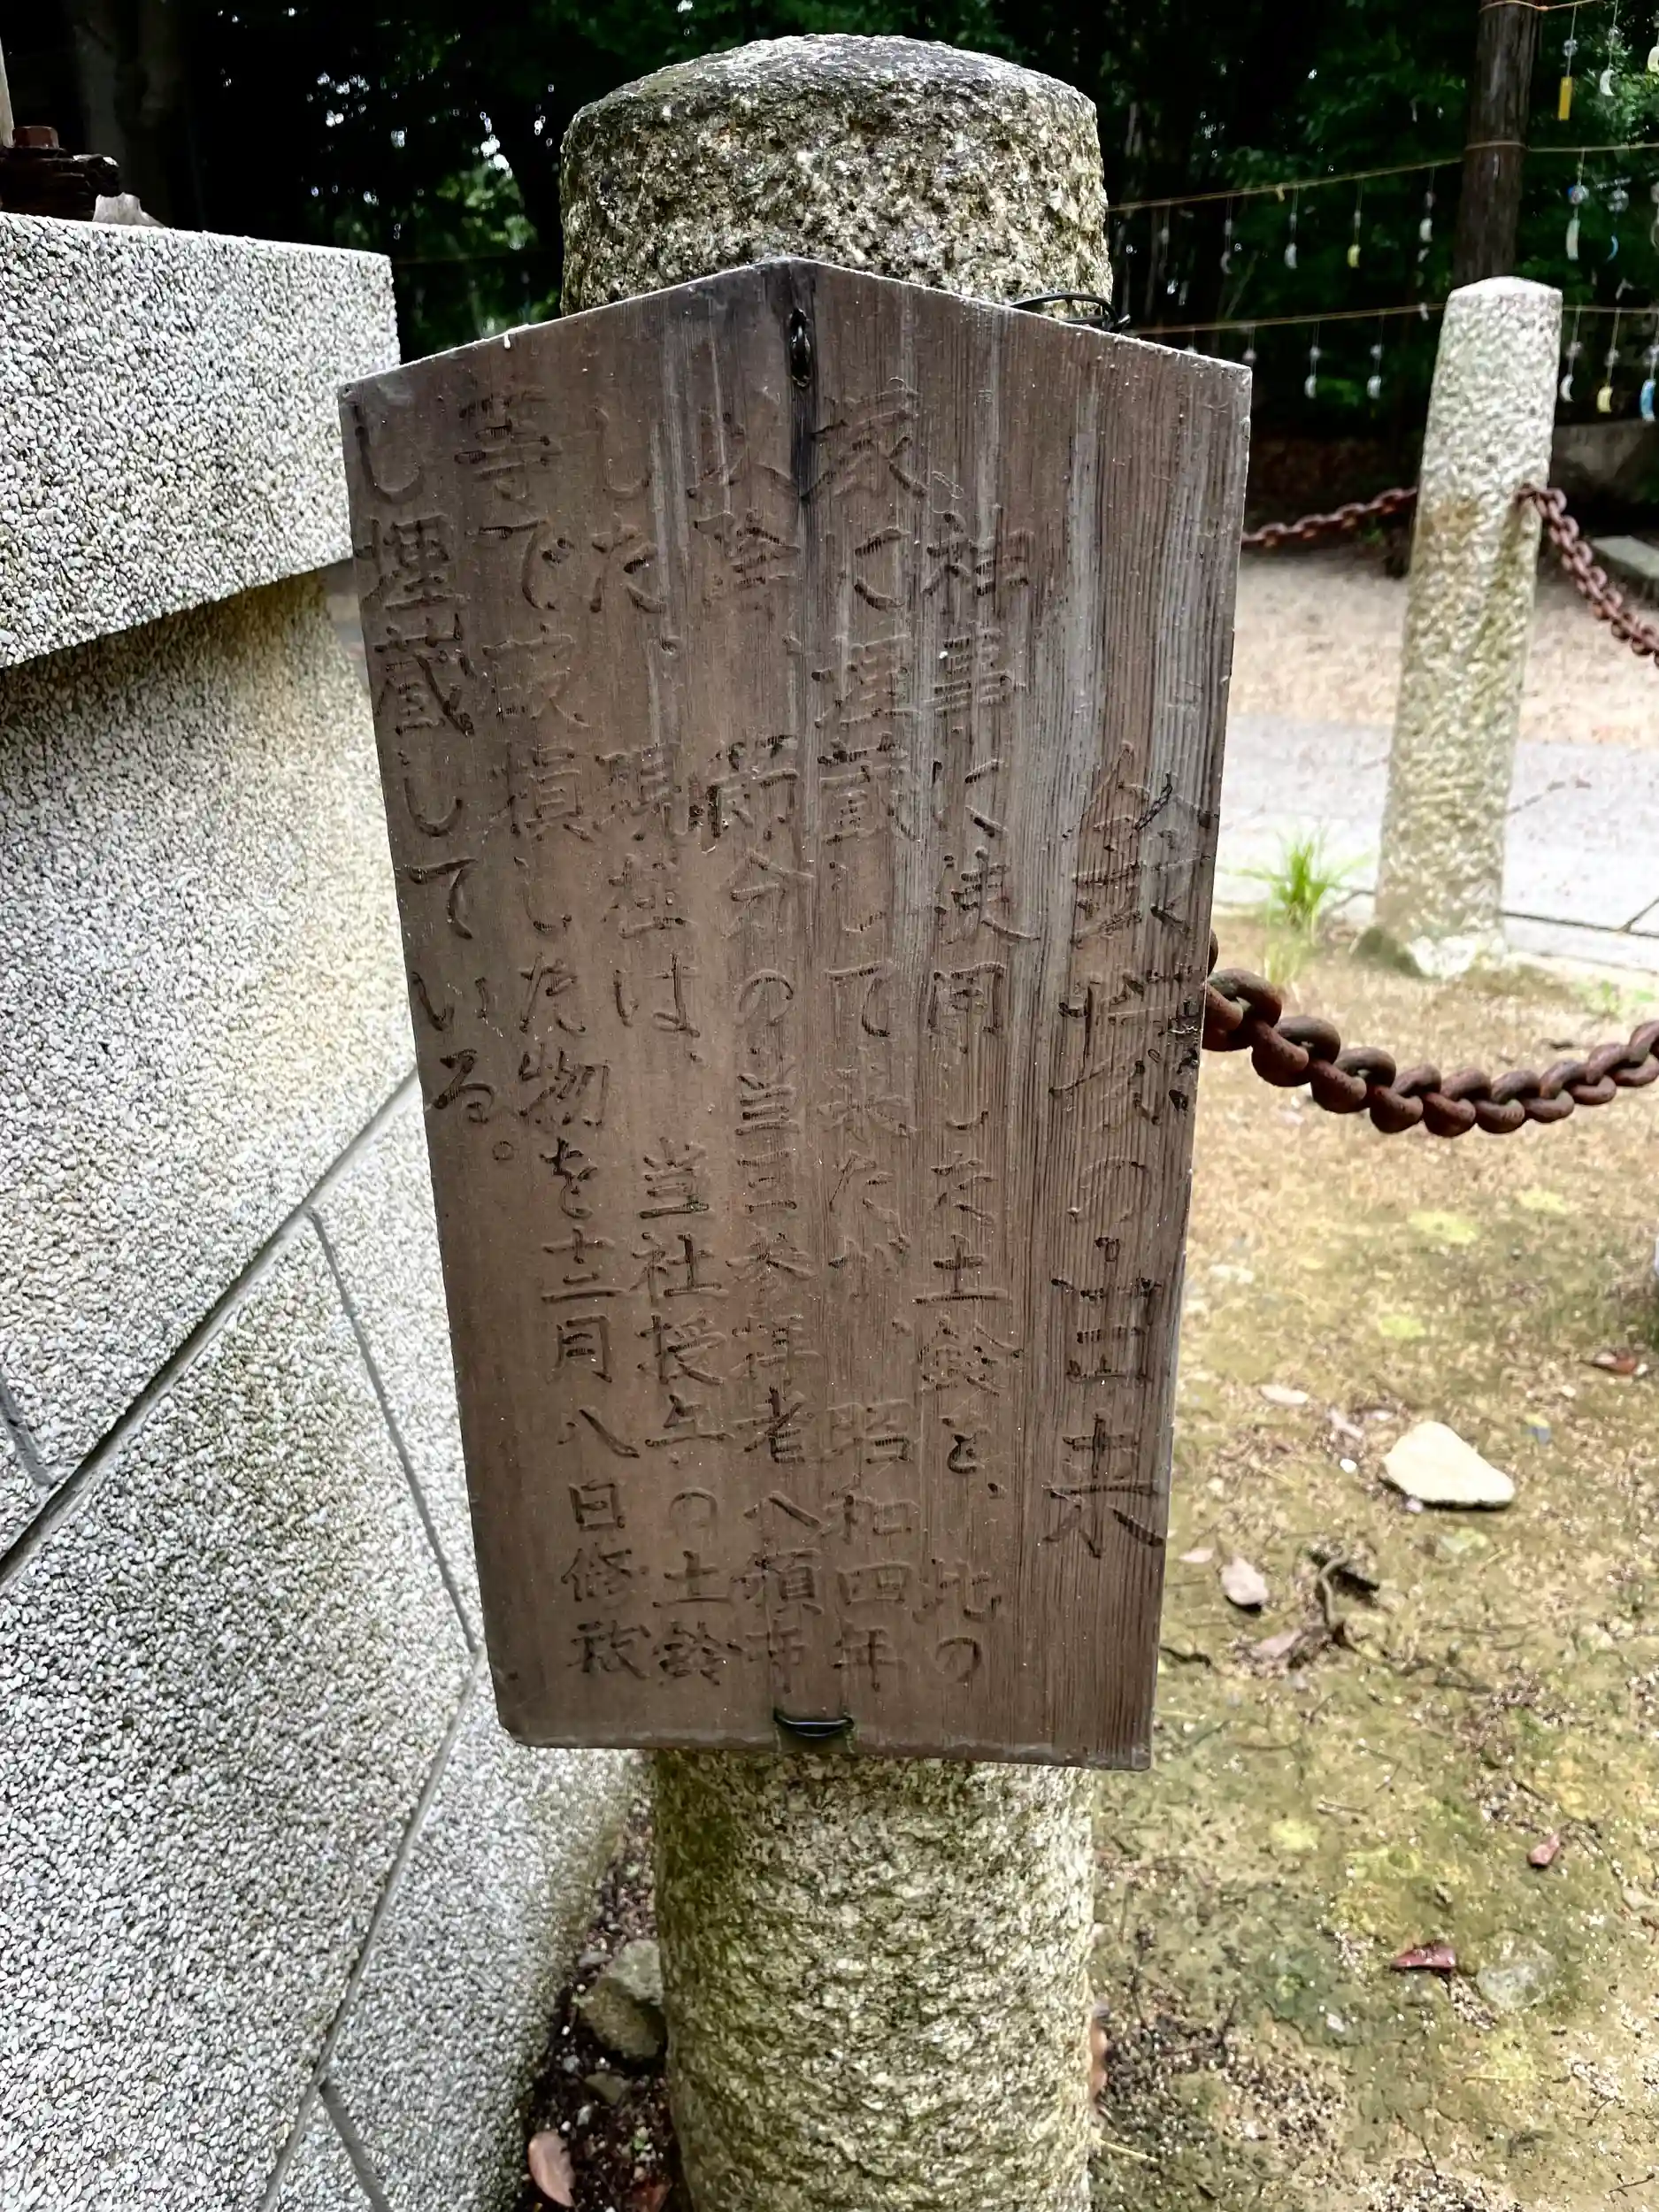 鈴塚の由来
神事に使用した土鈴を、此の
塚に埋蔵して来たが、昭和四年
以降、節分の当日参拝者へ頒布
した。現在は、当社授与の土鈴
等で破損した物を十二月八日修祓
し埋蔵している。